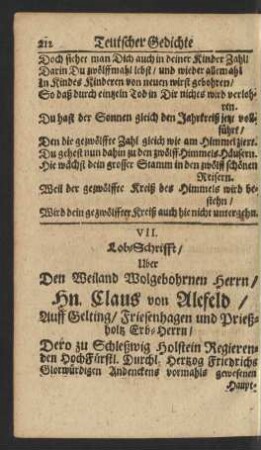 212 Teutscher Gedichte
Doch siehet man Dich auch in deiner Kinder Zahl!
Darin Du zwölffmahl lebst / und wieder allemahl
In Kindes Kinderen von neuen wirst gebohren /
So daß durch eintzeln Tod in Dir nichts wird verlohren.
Du hast der Sonnen gleich den Jahrkreiß jetz vollführt /
Den die gezwölffte Zahl gleich wie am Himmel ziert.
Du gehest nun dahin zu den zwölff Himmels-Häusern.
Hie wächst dein grosser Stamm in den zwölff schönen
Reisern.
Weil der gezwölffte Kreiß des Himmels wird bestehn /
Wird dein gezwölffter Kreiß auch hie nicht untergehn.
VII.
Lob-Schrifft /
Uber
Den Weiland Wolgebohrnen Herrn /
Hn. Claus von Alefeld /
Auff Gelting / Friesenhagen und Prießholtz Erb-Herrn /
Dero zu Schleßwig Holstein Regierenden HochFürstl. Durchl. Hertzog Friedrichs
Glorwürdigen Andenckens vormahls gewesenen
Haupt-